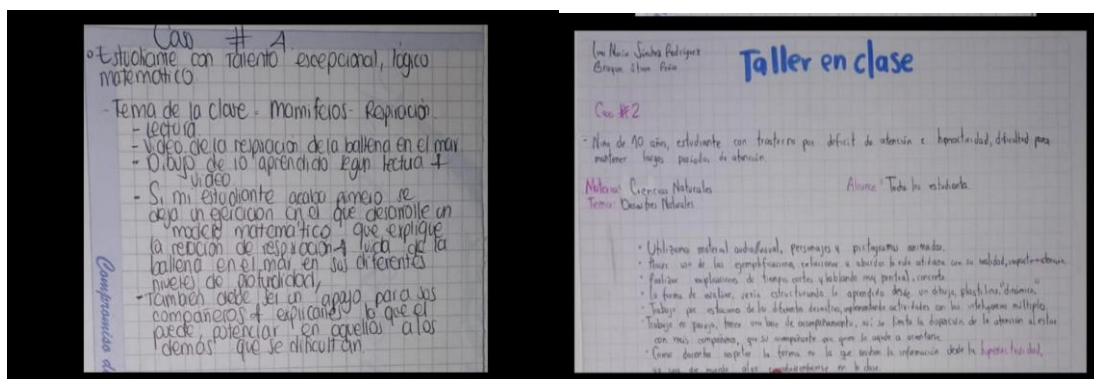 Caso # 4
Estudiante con talento excepcional, lógico
matemático
- Tema de la clase - Mamíferos - Respiración
- Lectura
- Video de la respiración de la ballena en el mar
- Dibujo de lo aprendido según lectura +
video
- Si mi estudiante acaba primero se
deja un ejercicio en el que desarrolle un
modelo matemático que explique
la relación de respiración + vida de la
ballena en el mar, en sus diferentes
niveles de profundidad,
- También debe ser un apoyo para sus
compañeros + explicarles lo que el
puede, potenciar en aquellos a los
demás que se dificultan.
Compromiso d
Sandra Rodríguez
Taller en clase
Caso #2
- Niña de 10 años, estudiante con trastorno por déficit de atención e hiperactividad, dificultad para
mantener largos periodos de atención.
Materia: Ciencias Naturales
Alcance: Todos los estudiantes
Tema: Desastres Naturales
• Utilizamos material audiovisual, personajes y pictogramas animados.
• Hacer uso de las ejemplificaciones, relacionar y abordar desde con su realidad,
• Realizar explicaciones de tiempos cortos y hablando muy puntual, concreto.
• la forma de evaluar, sería estructurando lo aprendido desde un dibujo, plastilina, "dinámica"
• Trabajo por estaciones de los diferentes desastres, implementando actividades con las inteligencias múltiples
Trabajo en pareja, tener una base de acompañamiento, así se limita la dispersión de la atención al estar
con más compañeros, que su acompañante sea quien la ayude a orientarse
• Como docentes respetar la forma en la que reciben la información desde la hiperactividad,
en la clase.